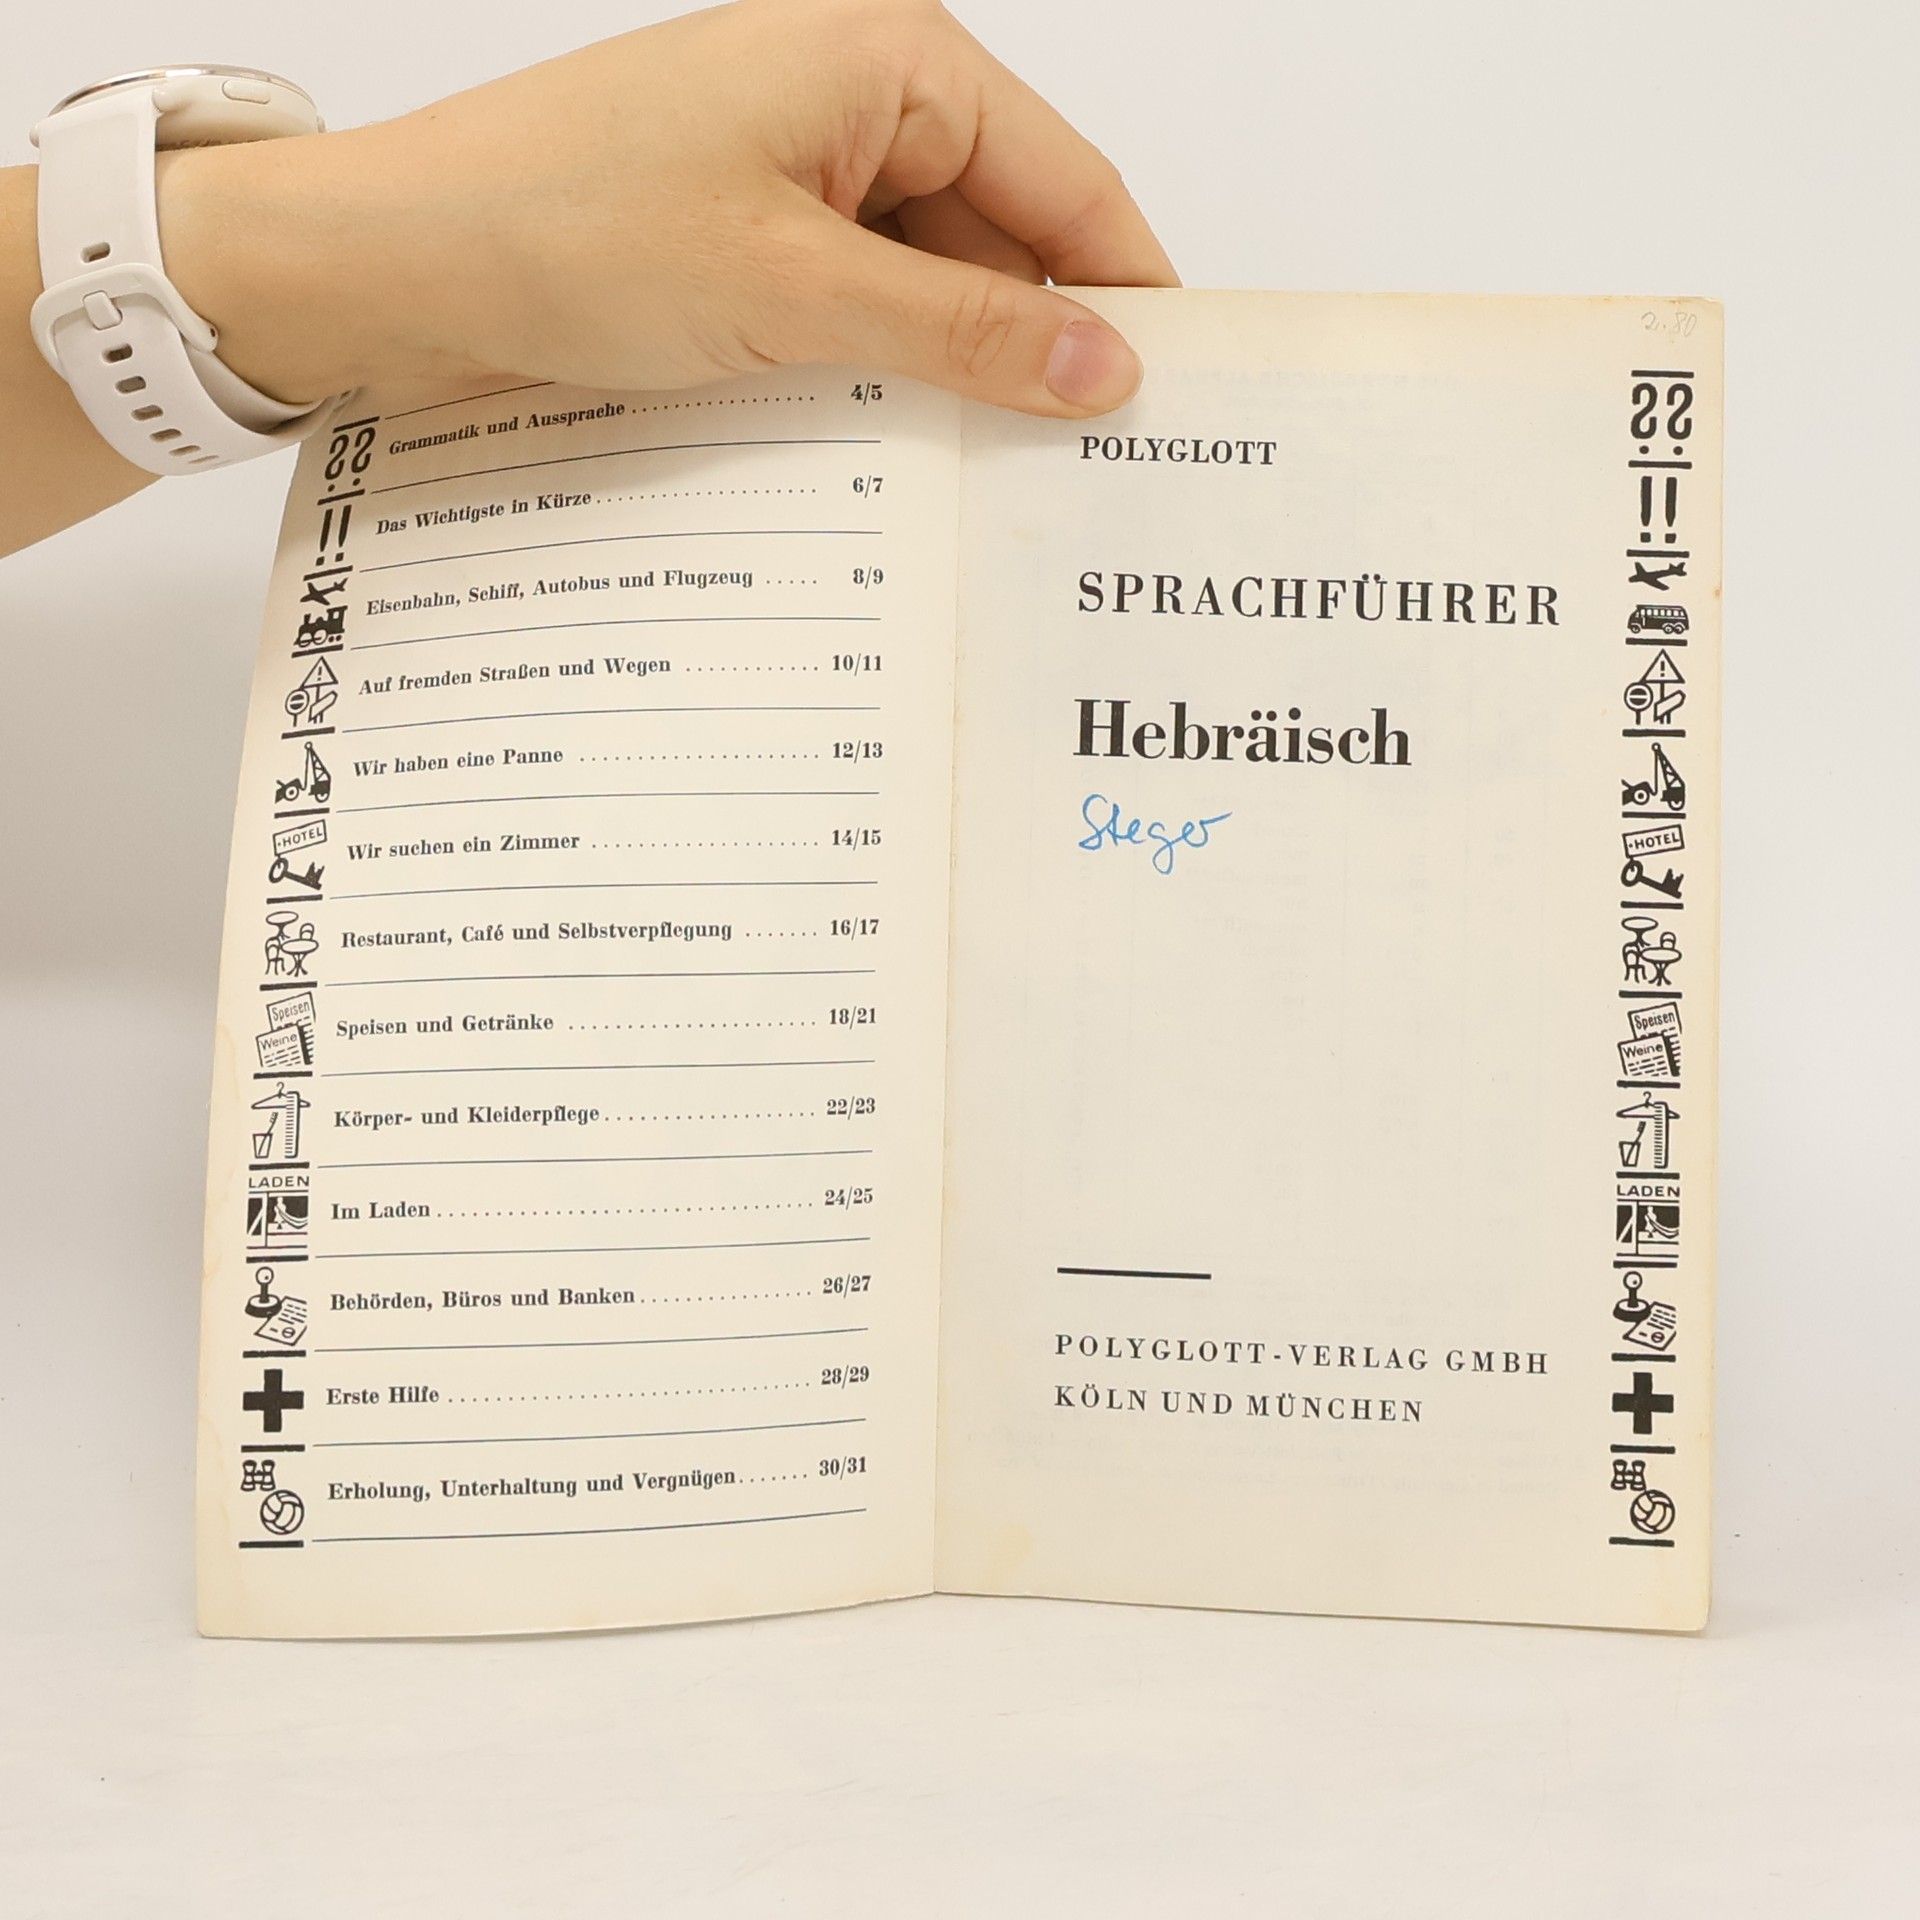 Grammatik und Aussprache ................ 4/5
Das Wichtigste in Kürze .................... 6/7
Eisenbahn, Schiff, Autobus und Flugzeug ..... 8/9
Auf fremden Straßen und Wegen ............ 10/11
Wir haben eine Panne ...................... 12/13
HOTEL
Wir suchen ein Zimmer ..................... 14/15
Restaurant, Café und Selbstverpflegung ....... 16/17
Speisen
Weine
Speisen und Getränke ....................... 18/21
Körper- und Kleiderpflege ................... 22/23
LADEN
Im Laden .................................. 24/25
Behörden, Büros und Banken ................ 26/27
Erste Hilfe ................................. 28/29
Erholung, Unterhaltung und Vergnügen ....... 30/31
2.80
POLYGLOTT
SPRACHFÜHRER
Hebräisch
Steger
POLYGLOTT-VERLAG GMBH
KÖLN UND MÜNCHEN
HOTEL
Speisen
Weine
LADEN